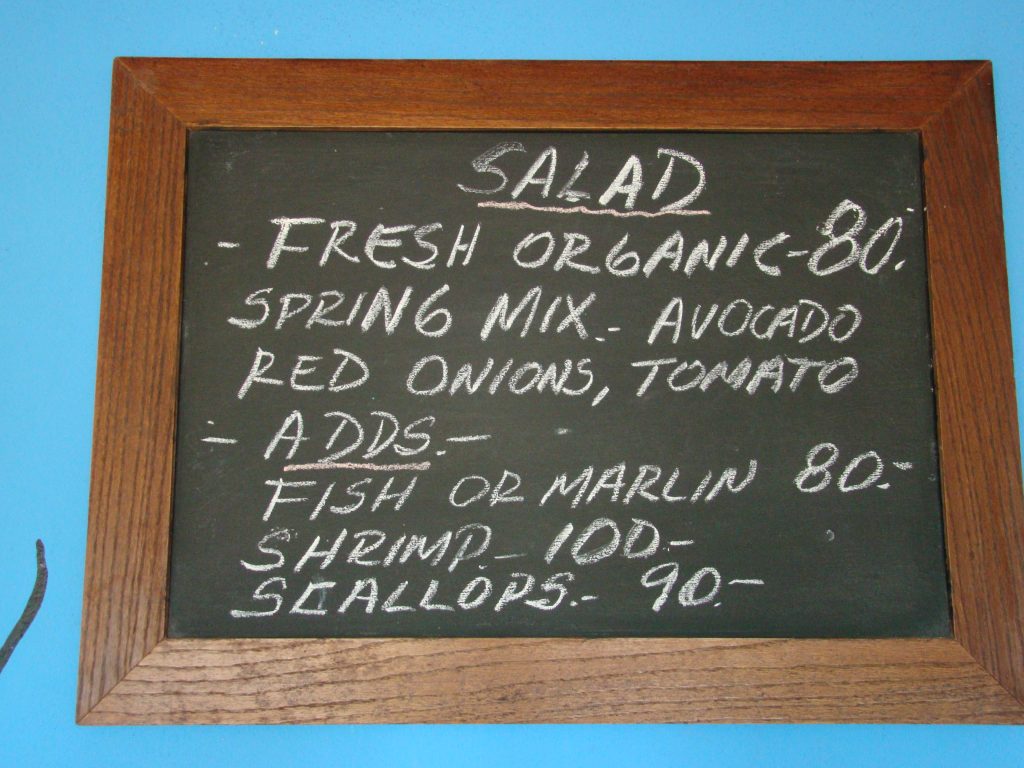 SALAD
- FRESH ORGANIC-80.-
SPRING MIX.- AVOCADO
RED ONIONS, TOMATO
- ADDS.-
FISH OR MARLIN 80.-
SHRIMP.- 100-
SCALLOPS.- 90.-